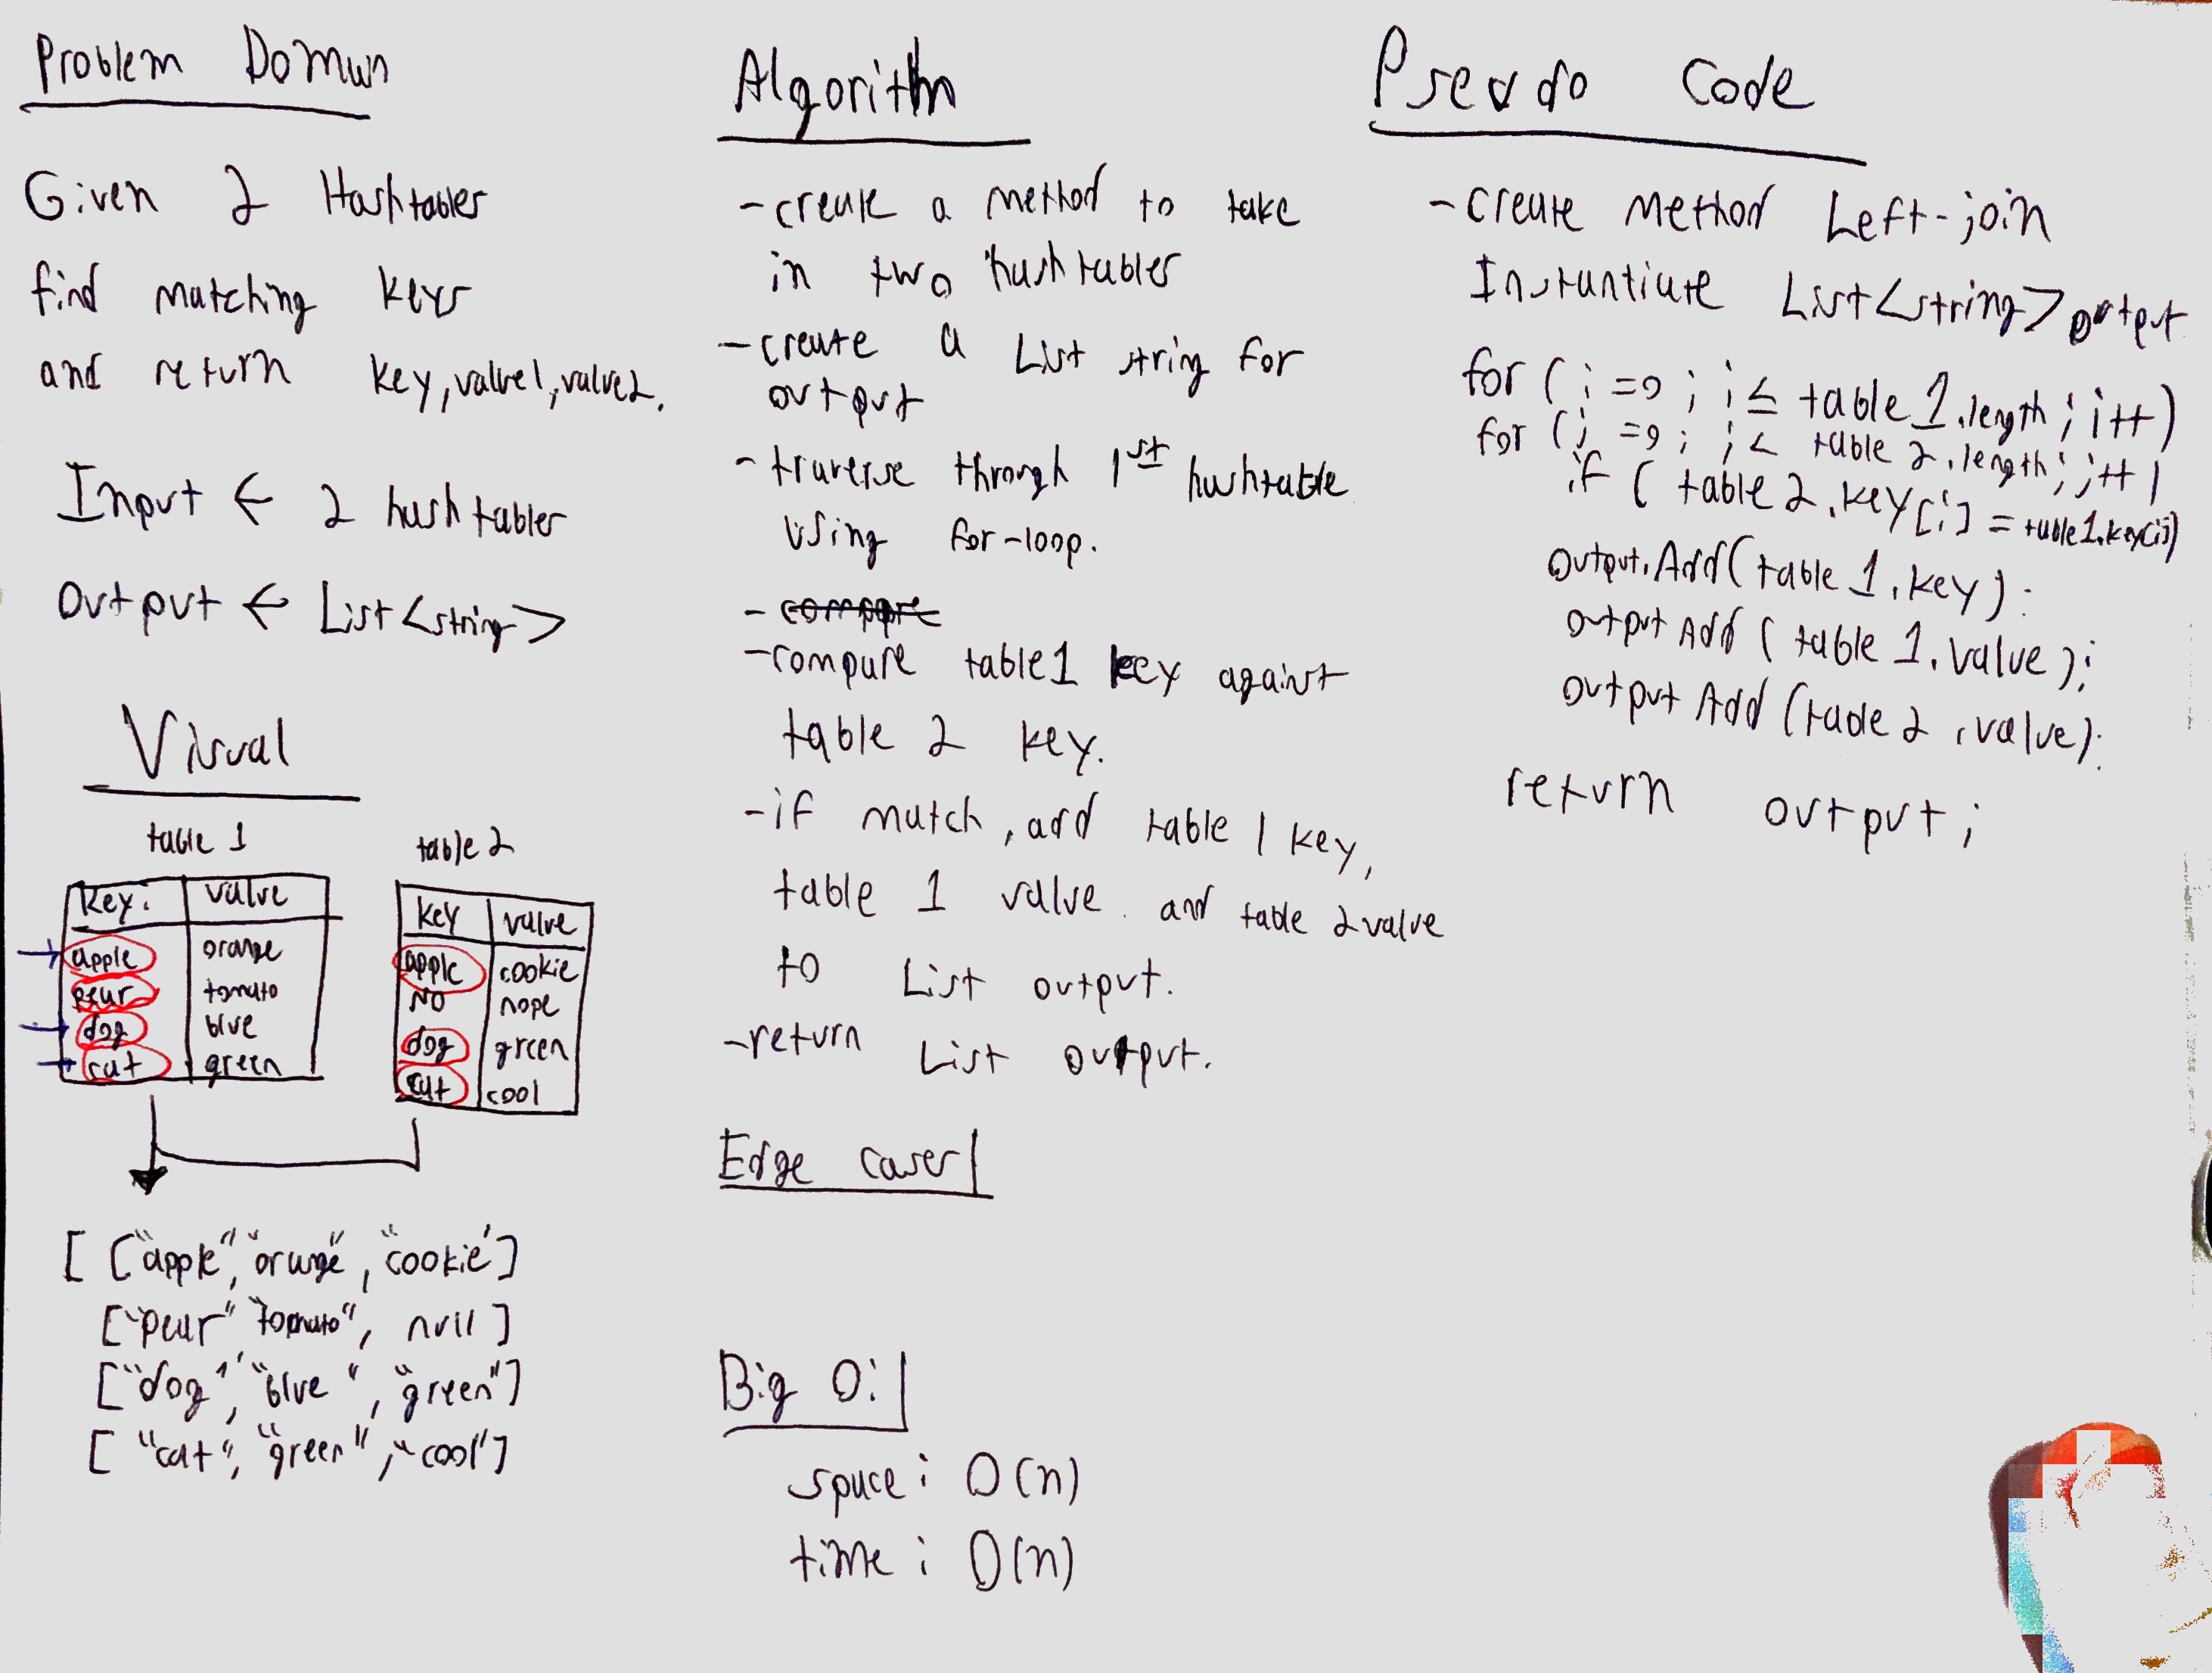 Problem Domain
Given 2 Hashtables
find matching keys
and return key, value1, value2.
Input ← 2 hash tables
Output ← List<string>
Visual
table 1
Key: value
apple orange
pear tomato
dog blue
cat green
table 2
Key value
apple cookie
NO nope
dog green
cat cool
[ ["apple", "orange", "cookie"]
["pear" "tomato", null ]
["dog", "blue", "green"]
[ "cat", "green", "cool"]
Algorithm
- create a method to take
in two hashtables
- create a List string for
output
- traverse through 1st hashtable
using for-loop.
- compare
- compare table1 key against
table 2 key.
- if match, add table 1 key,
table 1 value and table 2 value
to List output.
- return List output.
Edge cases
Big O:
space: O(n)
time: O(n)
Pseudo Code
- create method Left-join
Instantiate List<string> output
for ( i =0 ; i ≤ table 1.length ; i++)
for (j =0; j < table 2.length; j++)
if ( table 2.key[i] = table1.key[i])
output.Add(table 1.key);
output Add ( table 1.value );
output Add (table 2.value);
return output;